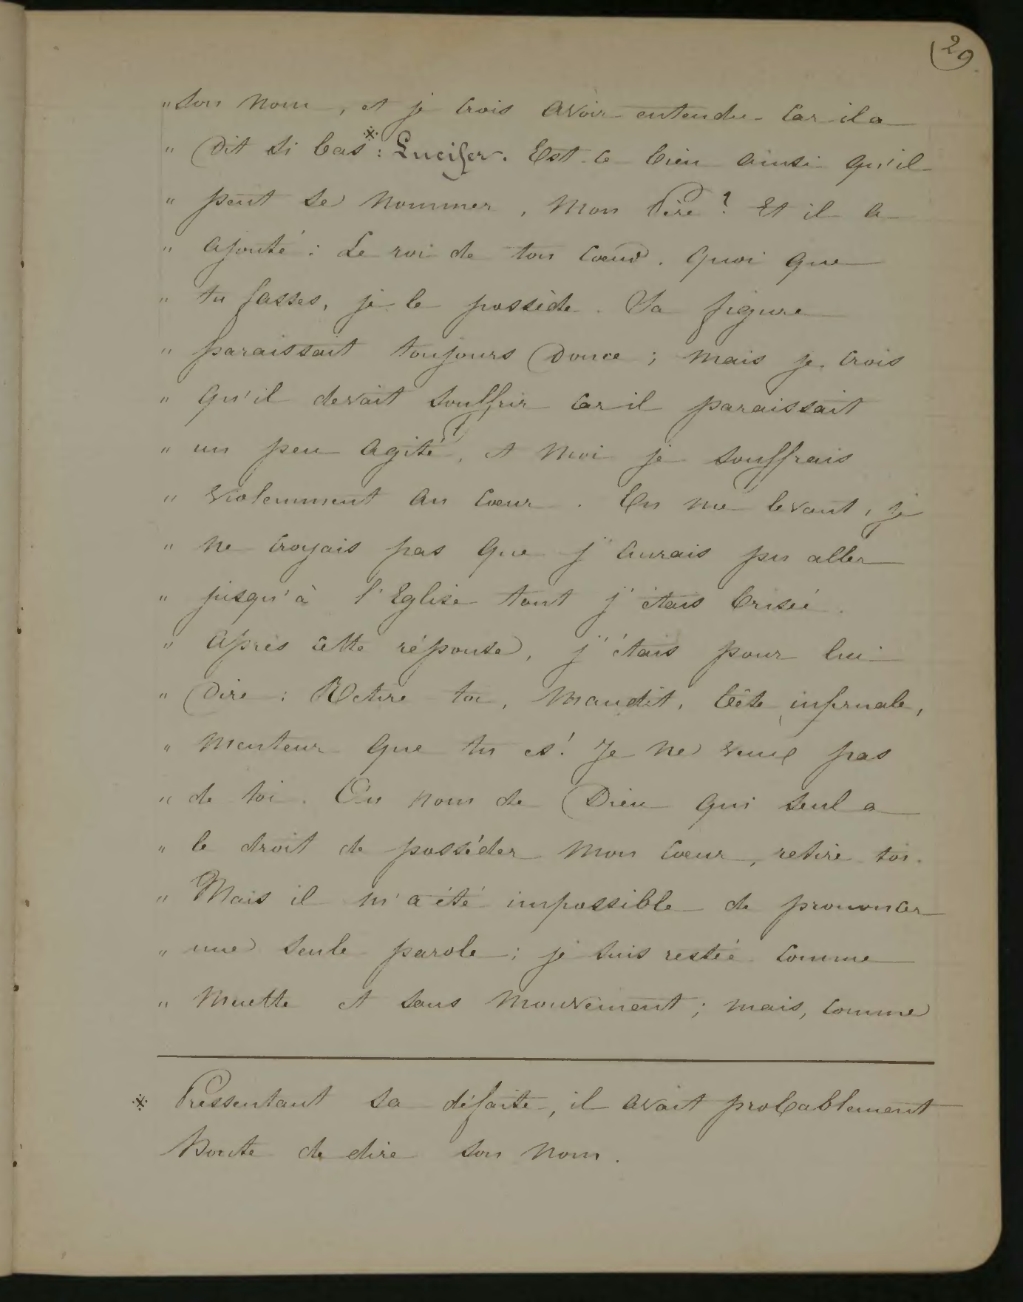 29
" son nom, et je crois avoir entendu car il a
" dit si bas * : Lucifer. Est-ce bien ainsi qu'il
" peut se nommer, mon Père ? Et il a
" ajouté : Le roi de ton cœur. Quoi que
" tu fasses, je le possède. Sa figure
" paraissait toujours douce ; mais je crois
" qu'il devait souffrir car il paraissait
" un peu agité, et moi je souffrais
" violemment au cœur. En me levant, je
" ne croyais pas que j'aurais pu aller
" jusqu'à l'Eglise tant j'étais brisée.
" Après cette réponse, j'étais pour lui
" dire : Retire toi, maudit, bête infernale,
" menteur que tu es ! Je ne veux pas
" de toi. Au nom de Dieu qui seul a
" le droit de posséder mon cœur, retire toi.
" Mais il m'a été impossible de prononcer
" une seule parole ; je suis restée comme
" muette et sans mouvement ; mais, comme
* Pressentant sa défaite, il avait probablement
honte de dire son nom.